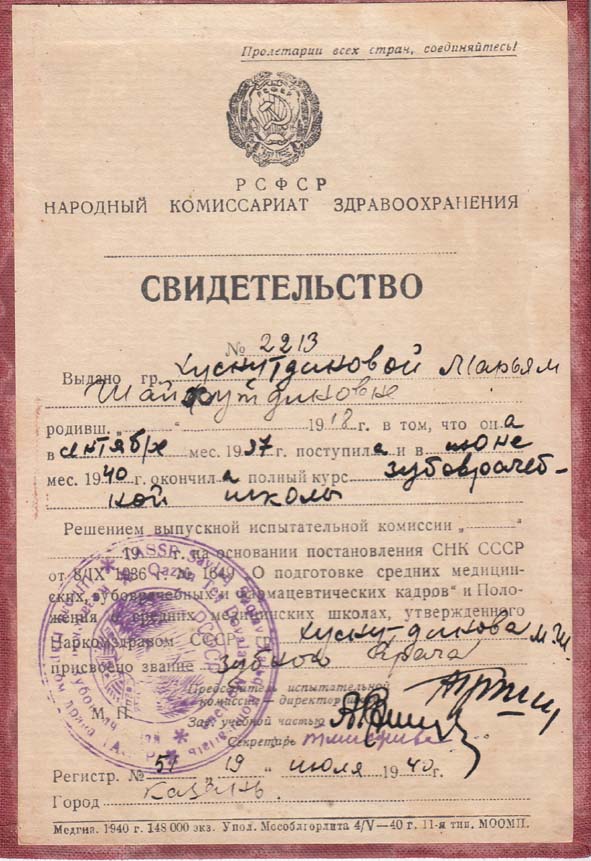 Пролетарии всех стран, соединяйтесь!
РСФСР
РСФСР
НАРОДНЫЙ КОМИССАРИАТ ЗДРАВООХРАНЕНИЯ
СВИДЕТЕЛЬСТВО
№ 2213
Выдано гр. Хуснутдиновой Марьям
Шайхутдиновне
родивш. „ “ 1918 г. в том, что она
в сентябре мес. 1937 г. поступила и в июне
мес. 1940 г. окончила полный курс зубоврачеб-
ной школы
Решением выпускной испытательной комиссии „ “
19 г. на основании постановления СНК СССР
от 8/IX 1936 г. № 1649 „О подготовке средних медицин-
ских, зубоврачебных и фармацевтических кадров“ и Поло-
жения о средних медицинских школах, утвержденного
Наркомздравом СССР, гр. Хуснутдинова М.Ш.
присвоено звание зубного врача
Председатель испытательной
комиссии – директор
М. П.
Зав. учебной частью
Секретарь
Регистр. № 51 „19“ июля 1940 г.
Город Казань
Медгиз. 1940 г. 148 000 экз. Упол. Мособлгорлита 4/V—40 г. 11-я тип. МООМП.
TASSR Qazan